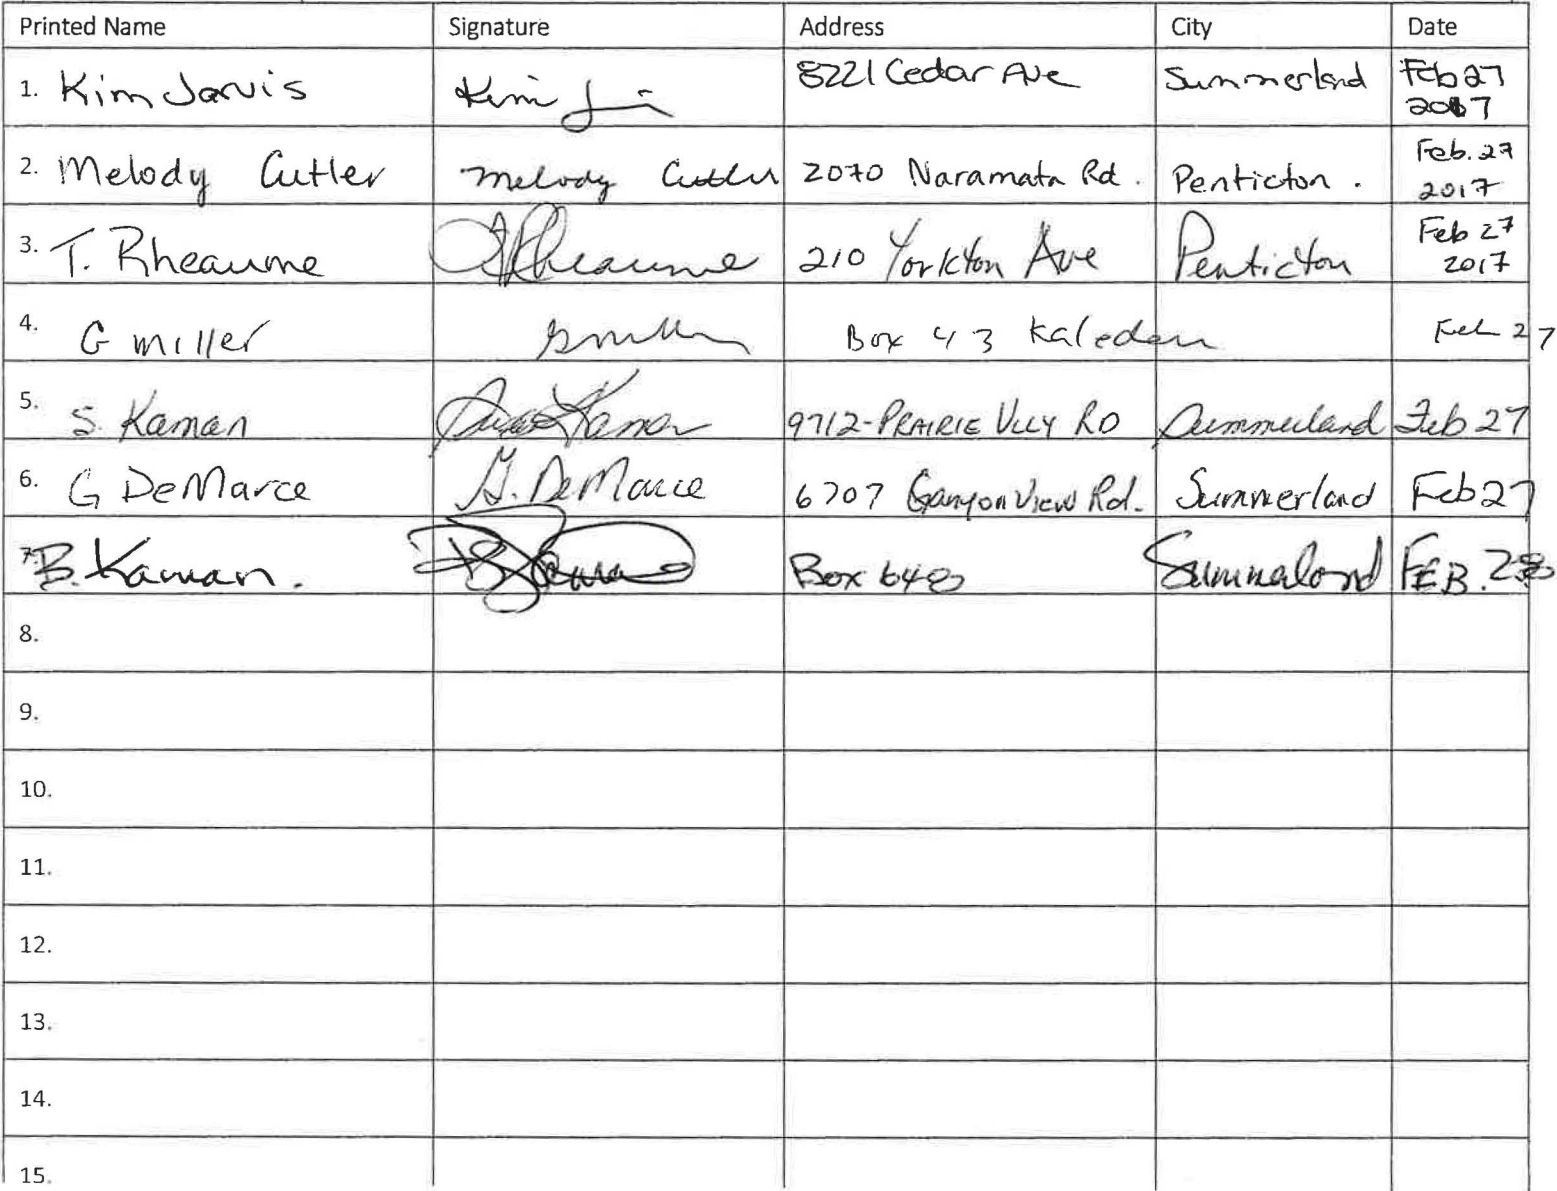 Printed Name Signature Address City Date
1. Kim Jarvis Kim 8221 Cedar Ave Summerland Feb 27
2017
2. Melody Cutler Melody Cutler 2070 Naramata Rd. Penticton. Feb. 27
2017
3. T. Rheaume TRheaume 210 Yorkton Ave Penticton Feb 27
2017
4. G Miller Box 43 Kaleden Feb 27
5. S. Kaman Kaman 9712-PRAIRIE VLLY RD Summerland Feb 27
6. G DeMarce G. DeMarce 6707 Canyon View Rd. Summerland Feb 27
7. B. Kaman. Box 648 Summerland FEB. 28
8.
9.
10.
11.
12.
13.
14.
15.